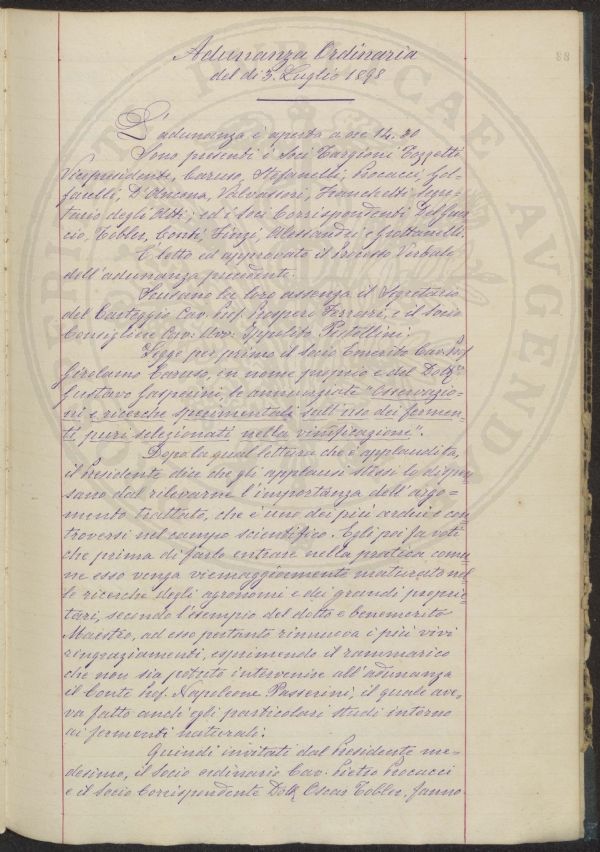 Adunanza Ordinaria
del dì 3. Luglio 1898
88
L'adunanza è aperta a ore 14.30
Sono presenti i Soci Targioni Tozzetti
Vicepresidente, Caruso, Stefanelli, Piccucci, Gol-
farelli, D'Ancona, Valvassori, Franchetti Segre-
tario degli Atti; ed i Soci Corrispondenti Del Guer
cio, Tobler, Conti, Finzi, Alessandri e Grottanelli.
È letto ed approvato il Processo Verbale
dell'adunanza precedente.
Scusano la loro assenza il Segretario
del Carteggio Cav. Prof. Prospero Ferrari, e il Socio
Consigliere Cav: Avv: Ippolito Pestellini.
Legge per primo il Socio Emerito Cav. Prof
Girolamo Caruso, in nome proprio e del Dott.
Gustavo Gasperini, le annunziate "Osservazio-
ni e ricerche sperimentali sull'uso dei fermen-
ti, puri selezionati nella vinificazione".
Dopo la qual lettura che è applaudita,
il Presidente dice che gli applausi stessi lo dispen
sano dal rilevarne l'importanza dell'argo=
mento trattato, che è uno dei più ardui e con
troversi nel campo scientifico. Egli poi fa voti
che prima di farlo entrare nella pratica comu
ne esso venga viemaggiormente maturato nel
le ricerche degli agronomi e dei grandi proprie
tari, secondo l'esempio del dotto e benemerito
Maestro, ad esso pertanto rinnuova i più vivi
ringraziamenti, esprimendo il rammarico
che non sia potuto intervenire all'adunanza
il Conte Prof. Napoleone Passerini, il quale ave,
va fatto anch'egli particolari studi intorno
ai fermenti naturali.
Quindi invitati dal Presidente me-
desimo, il Socio ordinario Cav. Pietro Piccucci
e il Socio Corrispondente Dott. Oscar Tobler, fanno